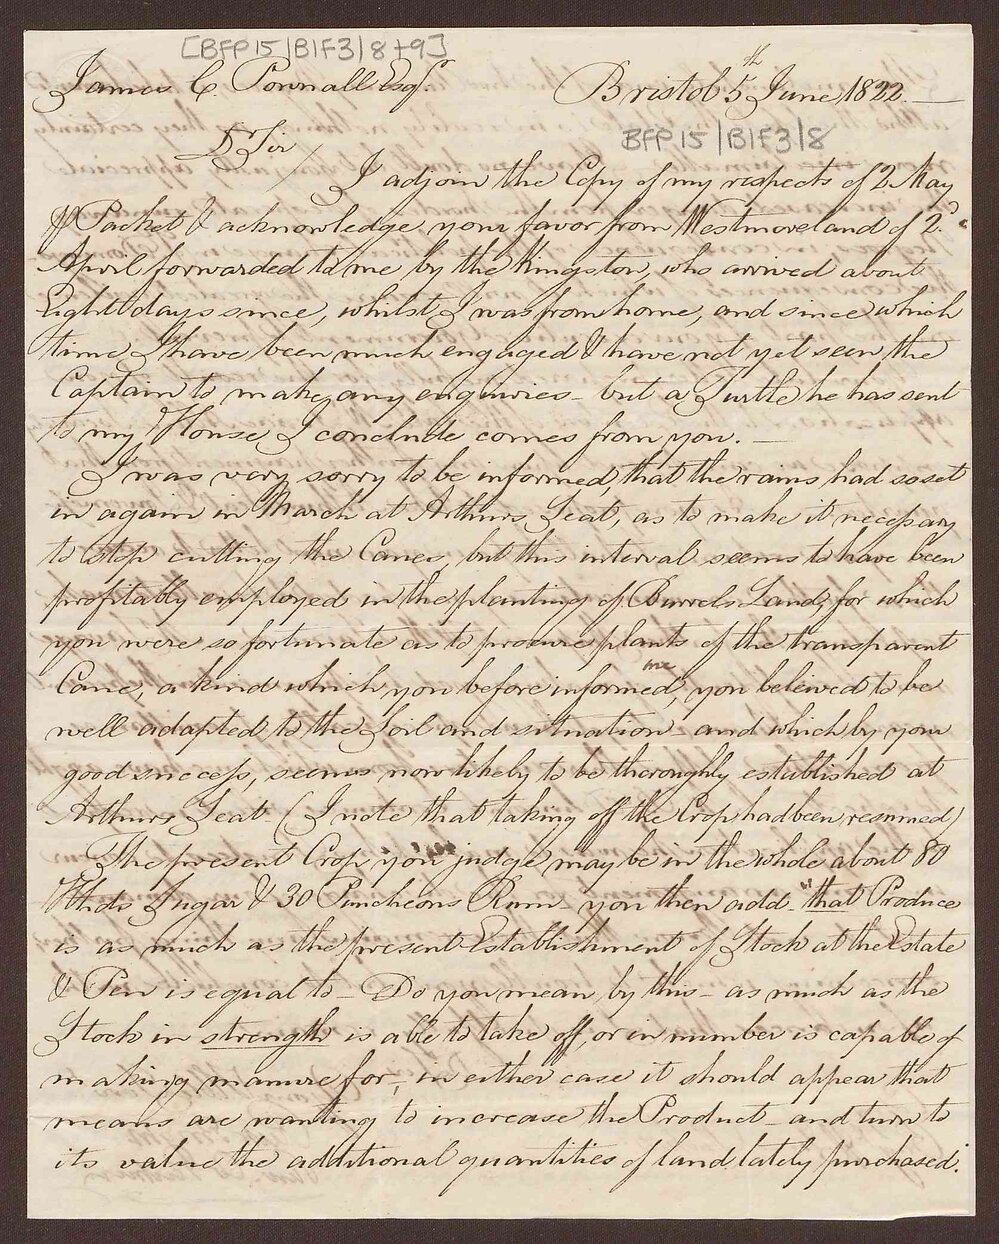 [BFP15/B1F3/8+9]
James C. Pownall Esqr. Bristol 5th June, 1822.
BFP15/B1F3/8
D Sir
I adjoin the Copy of my respects of 2 May
Packet & acknowledge your favor from Westmoreland of 2d.
April forwarded to me by the Kingston, who arrived about
Eight days since, whilst I was from home, and since which
time I have been much engaged & have not yet seen the
Captain to make any enquiries – but a Turtle he has sent
to my House, I conclude comes from you. –
I was very sorry to be informed, that the rains had so set
in again in March at Arthurs Seat, as to make it necessary
to stop cutting the Canes, but this interval seems to have been
profitably employed in the planting of Burrels Land, for which
you were so fortunate as to procure plants of the transparent
Cane, a kind which you before informed me, you beleived to be
well adapted to the Soil and situation – and which by your
good success, seems now likely to be thoroughly established at
Arthurs Seat. (I note that taking off the Crop had been resumed)
The present Crop you judge may be in the whole about 80
Hhds Sugar & 30 Puncheons Rum – you then add – that Produce
is as much as the present Establishment of Stock at the Estate
& Pen is equal to – Do you mean by this – as much as the
Stock in strength is able to take off, or in number is capable of
making manure for, in either case it should appear that
means are wanting to increase the Product – and turn to
its value the additional quantities of land lately purchased.